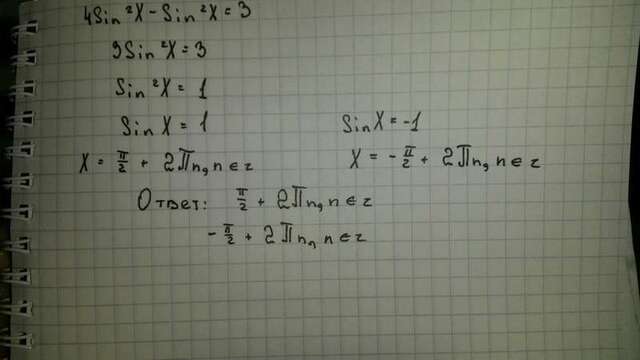 4Sin²X - Sin²X = 3
3Sin²X = 3
Sin²X = 1
SinX = 1 SinX = -1
X = π/2 + 2πn, n ∈ z X = -π/2 + 2πn, n ∈ z
Ответ: π/2 + 2πn, n ∈ z
-π/2 + 2πn, n ∈ z